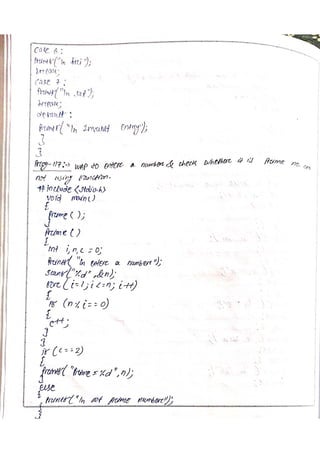 case 6:
printf("\n fri");
break;
case 7:
printf("\n sat");
break;
default:
printf("\n Invalid Entry");
}
}
Prog-117:- WAP to enter a number & check whether it is prime no or
not using function.
# include <stdio.h>
void main()
{
prime ();
}
prime ()
{
int i,n,c=0;
printf("\n enter a number");
scanf("%d",&n);
for (i=1; i<=n; i++)
{
if (n%i==0)
{
c++;
}
}
if (c==2)
{
printf("Prime=%d",n);
}
else
{
printf("\n not prime number");
}
}